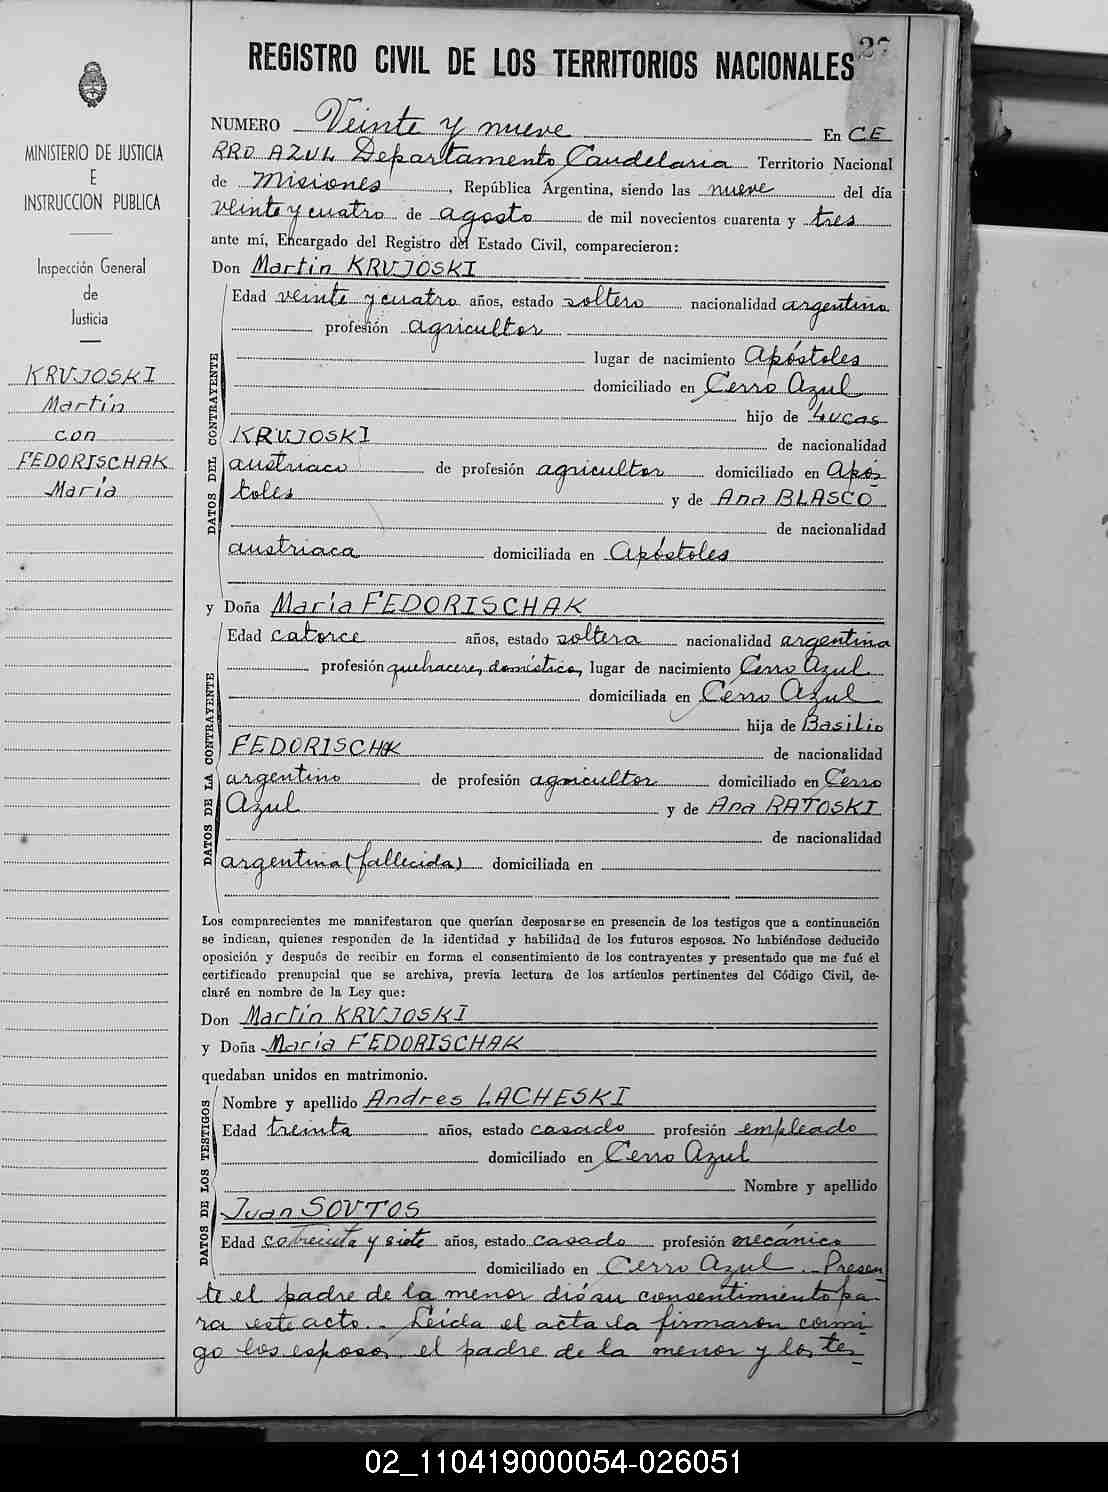 27
REGISTRO CIVIL DE LOS TERRITORIOS NACIONALES
MINISTERIO DE JUSTICIA
E
INSTRUCCION PUBLICA
Inspección General
de
Justicia
KRUJOSKI
Martín
con
FEDORISCHAK
María
NUMERO Veinte y nueve En CE
RRO AZUL Departamento Candelaria Territorio Nacional
de Misiones, República Argentina, siendo las nueve del día
veinte y cuatro de agosto de mil novecientos cuarenta y tres
ante mí, Encargado del Registro del Estado Civil, comparecieron:
Don Martin KRUJOSKI
DATOS DEL CONTRAYENTE
Edad veinte y cuatro años, estado soltero nacionalidad argentino
profesión agricultor
lugar de nacimiento Apóstoles
domiciliado en Cerro Azul
hijo de Lucas
KRUJOSKI de nacionalidad
austriaco de profesión agricultor domiciliado en Após-
toles y de Ana BLASCO
de nacionalidad
austriaca domiciliada en Apóstoles
y Doña María FEDORISCHAK
DATOS DE LA CONTRAYENTE
Edad catorce años, estado soltera nacionalidad argentina
profesión quehaceres domésticos, lugar de nacimiento Cerro Azul
domiciliada en Cerro Azul
hija de Basilio
FEDORISCHAK de nacionalidad
argentino de profesión agricultor domiciliado en Cerro
Azul y de Ana RATOSKI
de nacionalidad
argentina (fallecida) domiciliada en
Los comparecientes me manifestaron que querían desposarse en presencia de los testigos que a continuación
se indican, quienes responden de la identidad y habilidad de los futuros esposos. No habiéndose deducido
oposición y después de recibir en forma el consentimiento de los contrayentes y presentado que me fué el
certificado prenupcial que se archiva, previa lectura de los artículos pertinentes del Código Civil, de-
claré en nombre de la Ley que:
Don Martín KRUJOSKI
y Doña María FEDORISCHAK
quedaban unidos en matrimonio.
DATOS DE LOS TESTIGOS
Nombre y apellido Andres LACHESKI
Edad treinta años, estado casado profesión empleado
domiciliado en Cerro Azul
Nombre y apellido
Juan SOUTOS
Edad treinta y siete años, estado casado profesión mecánico
domiciliado en Cerro Azul. Presen
te el padre de la menor dió su consentimiento pa-
ra este acto. Leída el acta la firmaron conmi
go los esposos, el padre de la menor y los tes
02_110419000054-026051